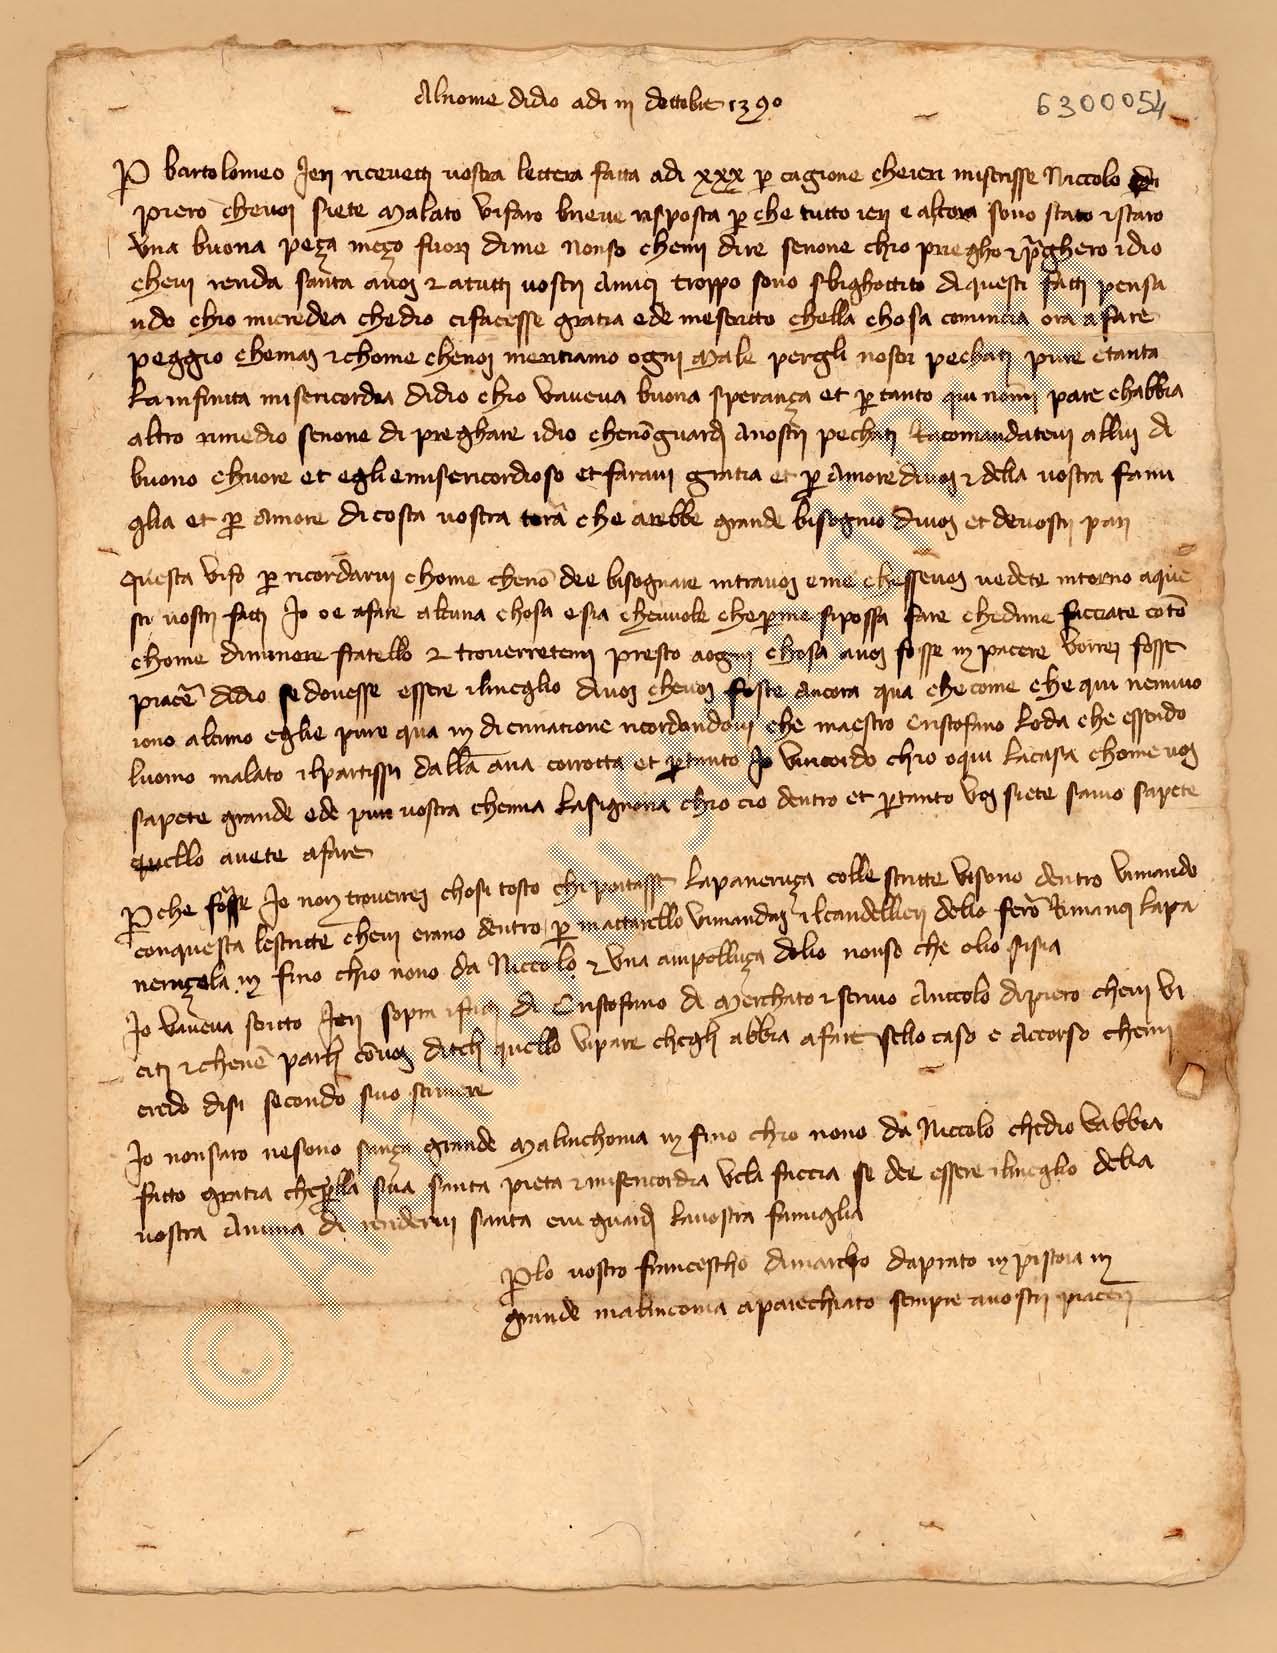 Al nome didio adi iii dottobre 1390
6300054
P bartolomeo Jeri ricevetti vostra lettera fatta adi xxx p cagione cheieri miscrisse Niccolo
piero chevoi siete Malato vifaro brieve risposta p che tutto ieri e altora sono stato e istaro
Una buona peza mezo fuori dime nonso chemi dire senone chio priegho e pghero idio
chevi renda santa avoi e atutti vostri Amici troppo sono sbighottito diquesti fatti pensa
ndo chio micredea chedio cifacesse gratia ede mescritto chella chosa comincia ora afare
peggio chemai e chome chenoi meritiamo ogni Male pergli nostri pechati pure etanta
La infinita misericordia didio chio vaveva buona speranza et p tanto qui nomi pare chabbia
altro rimedio senone di preghare idio chenoguardi anostri pechati Racomandatevi allui di
buono chuore et egli emisericordioso et faravi gratia et p Amore divoi e della vostra fami
glia et p amore di costa vostra tera che arebbe grande bisogno divoi et devostri pari
Questa vifo p ricordarvi chome cheno dee bisognare intravoi eme chessevoi vedete intorno aque
sti vostri fatti Jo oe afare alcuna chosa esia chevuole chepme siposa fare chedime facciate coto
chome diminore fratello e troverretemi presto aogni chosa avoi fosse in pacere vorrei fosse
piace didio sedovesse essere ilmeglio divoi chevoi foste ancora qua che come che qui nemuo
iono alcuno eglie pure qua in dicinatione ricordandovi che maestro Cristofano loda che essendo
luomo malato ilpartissi dalla aria corrotta et ptanto Jo vi ricordo chio oqui lacasa chome voi
sapete grande ede pure vostra chemia lasignoria chio cio dentro et ptanto voi siete savio sapete
quello avete afare
Pche forse Jo non troverrei chosi tosto chi portasse lapaneruza colle scritte visono dentro vimando
conquesta lescritte chevi erano dentro p mattarello vimandai ilcandellieri delio fero Rimanci lapa
neruzola in fino chio nono da Niccolo e una ampolluza dolio nonso che olio sisia
Jo vaveva scritto Jeri sopra ifatti di Cristofano di Merchato e scrivo Aniccolo dipiero chevi vi
citi e chene parli covoi ditelli quello vipare chegli abbia afare sello caso e accorso chemi
credo disi secondo suo scrivere
Jo nonsaro nesono sanza grande Malinchonia in fino chio nono da Niccolo chedio vabbia
fatto gratia chepella sua santa pieta e misericordia vela faccia se dee essere ilmeglio della
vostra Anima di rendervi santa evi guardi lavostra famiglia
Plo vostro francescho dimarcho daprato in pistoia in
grande malinconia aparechiato sempre avostri piaceri